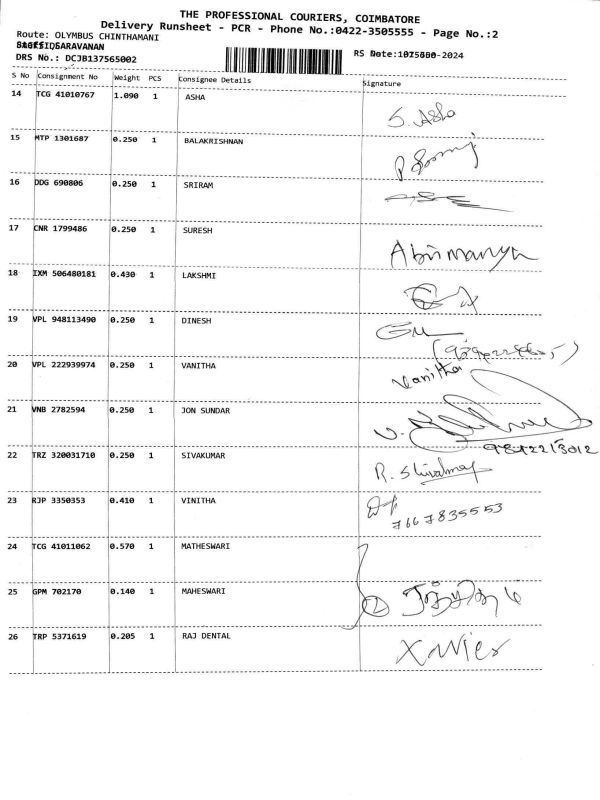 THE PROFESSIONAL COURIERS, COIMBATORE
Delivery Runsheet - PCR - Phone No.:0422-3505555 - Page No.:2
Route: OLYMBUS CHINTHAMANI
SARAVANAN
DRS No.: DCJB137565002
RS -2024
S No Consignment No Weight PCS Consignee Details Signature
14 TCG 41010767 1.090 1 ASHA S. Asha
15 MTP 1301687 0.250 1 BALAKRISHNAN
16 DDG 690806 0.250 1 SRIRAM
17 CNR 1799486 0.250 1 SURESH Abimanyu
18 IXM 506480181 0.430 1 LAKSHMI
19 VPL 948113490 0.250 1 DINESH
20 VPL 222939974 0.250 1 VANITHA Vanitha
21 VNB 2782594 0.250 1 JON SUNDAR
22 TRZ 320031710 0.250 1 SIVAKUMAR
23 RJP 3350353 0.410 1 VINITHA 7667835553
24 TCG 41011062 0.570 1 MATHESWARI
25 GPM 702170 0.140 1 MAHESWARI 2
26 TRP 5371619 0.205 1 RAJ DENTAL Xavier